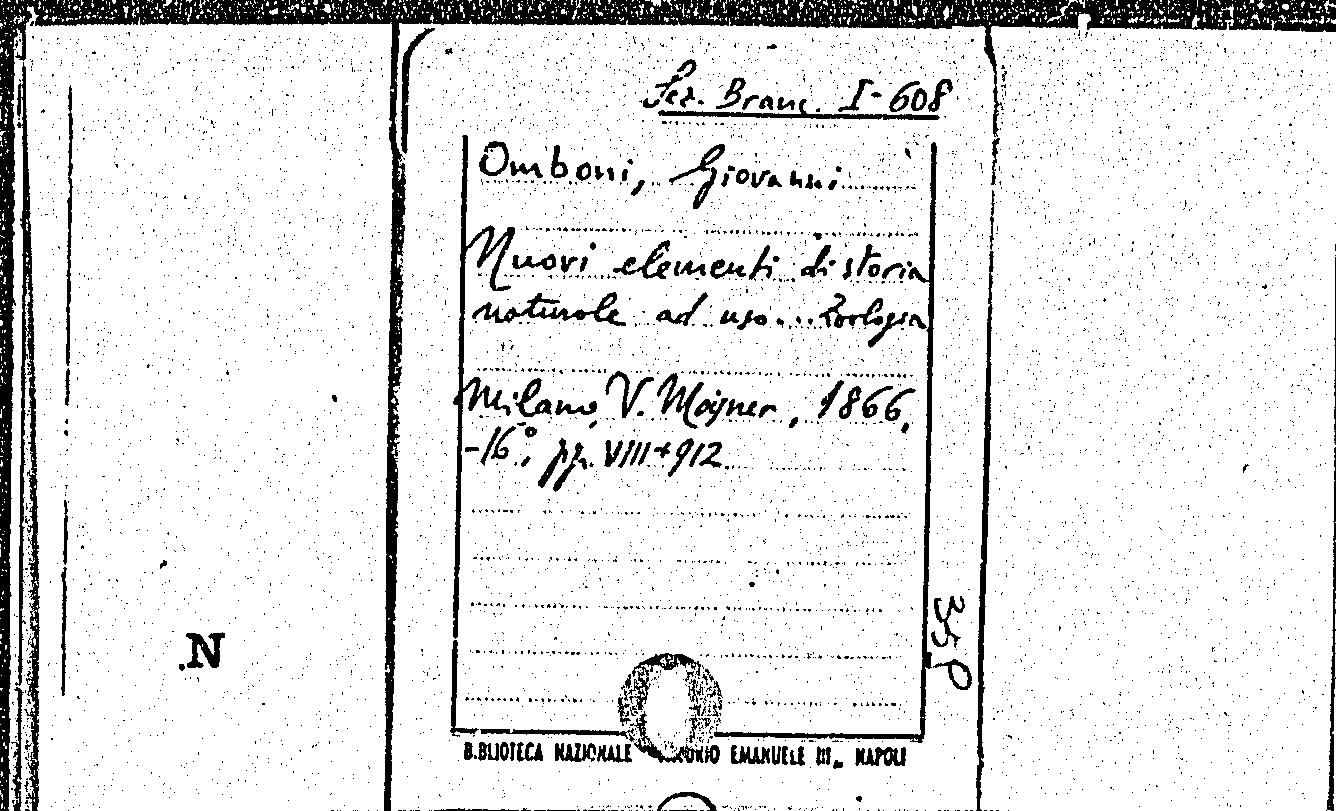 Sez. Branc. I-608
Omboni, Giovanni
Nuovi elementi di storia
naturale ad uso... Zoologia
Milano, V. Maisner, 1866,
-16°, pp. VIII+912
35
.N
B.BLIOTECA NAZIONALE EMANUELE III„ NAPOLI